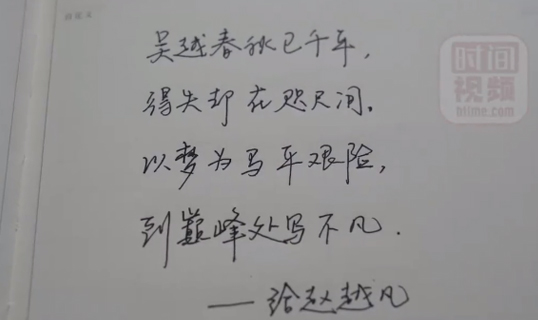 吴越春秋已千年，
得失却在咫尺间。
以梦为马平艰险，
到巅峰处写不凡．
——给赵越凡
时间
视频
ntime.com